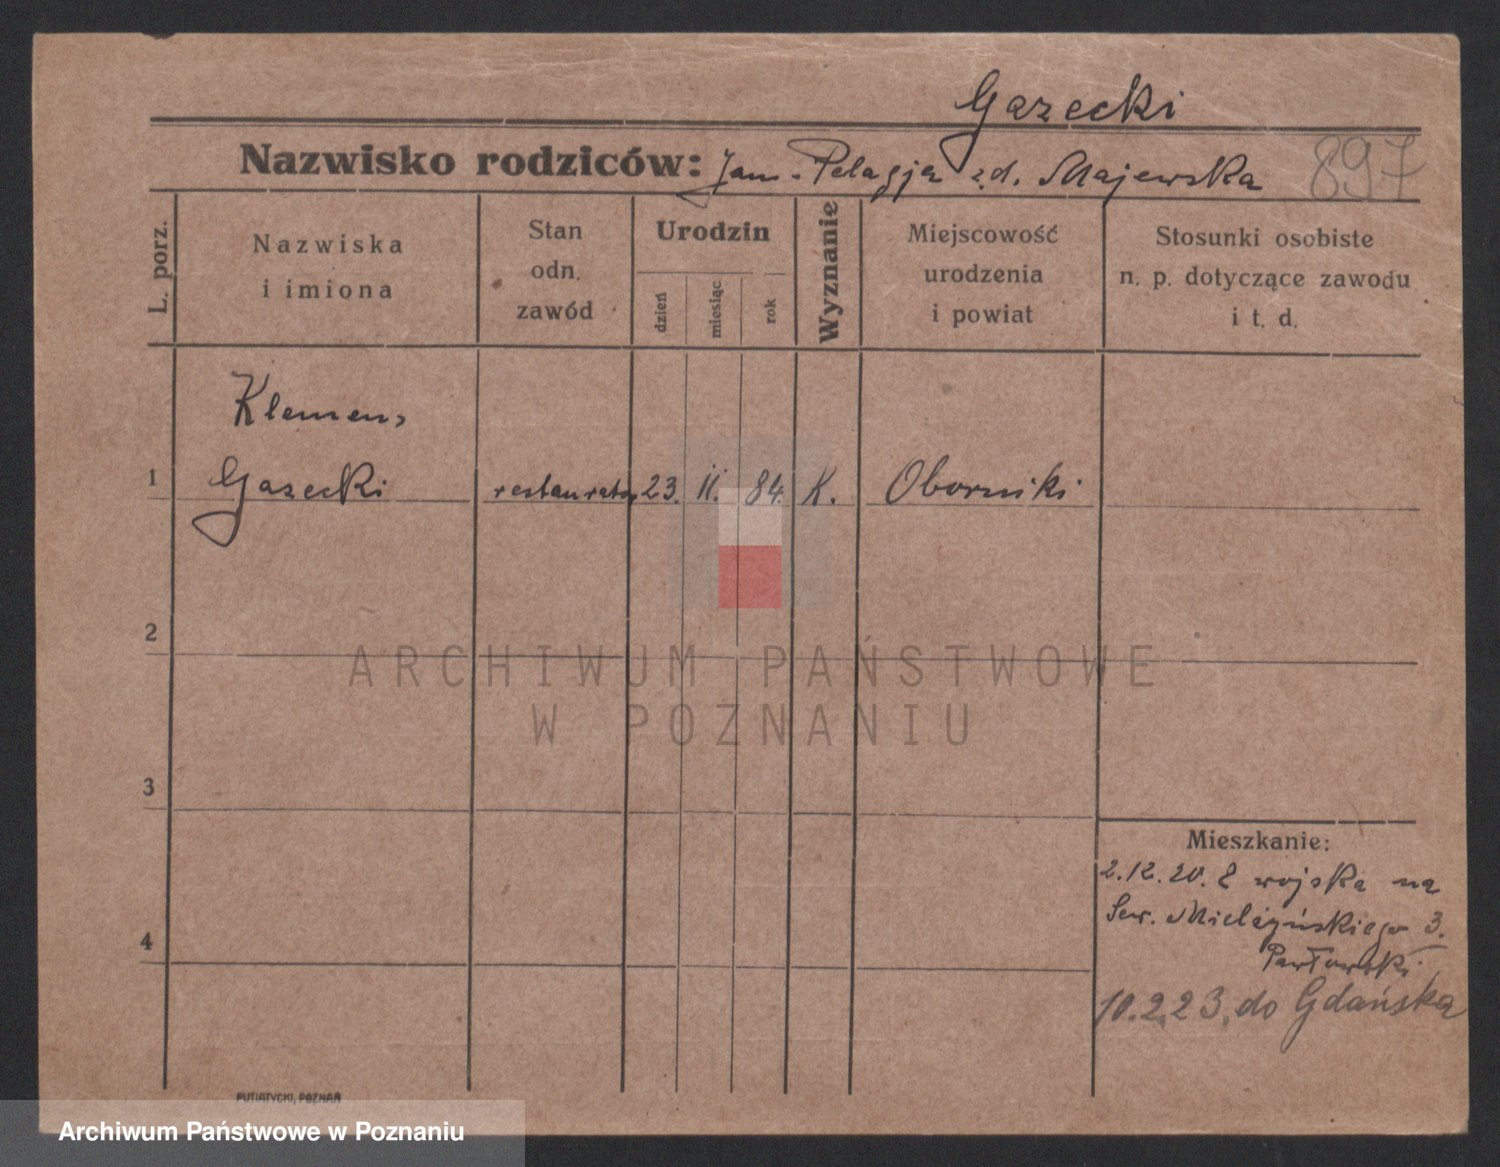 Gazecki
Nazwisko rodziców: Jan - Pelagja z.d. Majewska 897
L. porz.
Nazwiska
i imiona
Stan
odn.
zawód
Urodzin
dzień
miesiąc
rok
Wyznanie
Miejscowość
urodzenia
i powiat
Stosunki osobiste
n. p. dotyczące zawodu
i t. d.
Klemens
1 Gazecki restaurator 23. 11. 84. K. Oborniki
2
ARCHIWUM PAŃSTWOWE
W POZNANIU
3
Mieszkanie:
2.12.20. z wojska na
Sew. Mielżyńskiego 3.
Pawłowski
4
10.2.23. do Gdańska
PUTIATYCKI, POZNAŃ
Archiwum Państwowe w Poznaniu